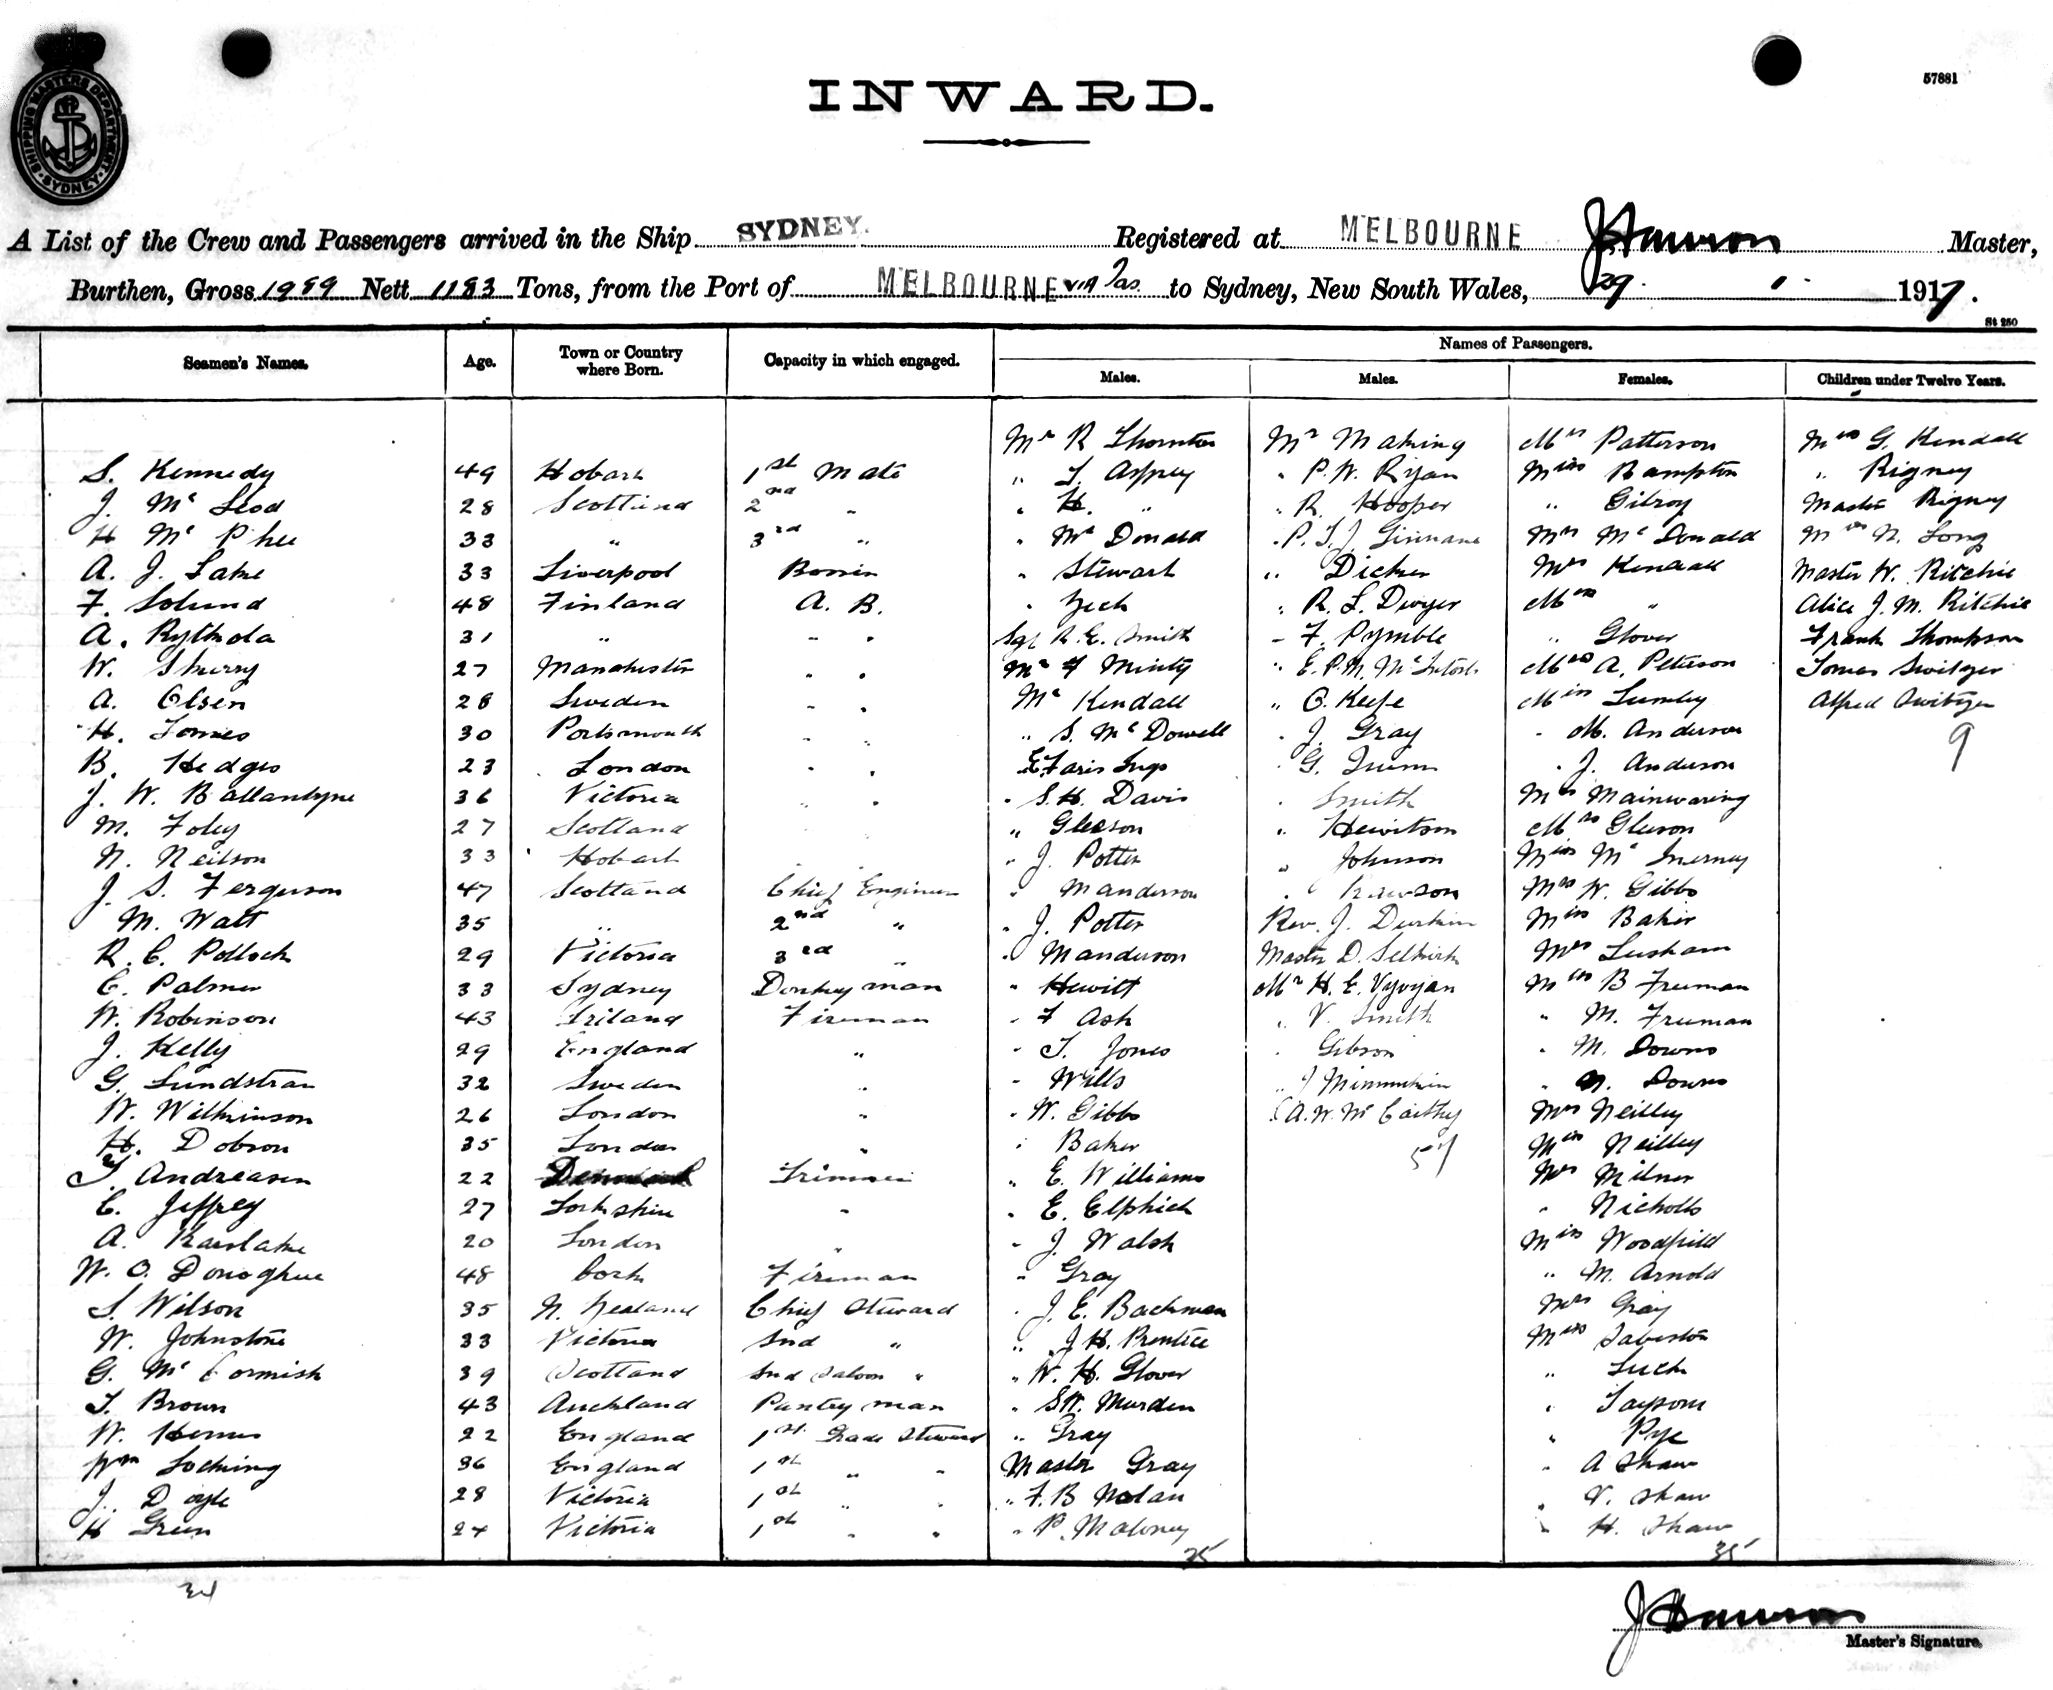 57881
INWARD.
SHIPPING MASTERS DEPARTMENT SYDNEY
A List of the Crew and Passengers arrived in the Ship SYDNEY. Registered at MELBOURNE Master,
Burthen, Gross 1989 Nett 1183 Tons, from the Port of MELBOURNE VIA Tas. to Sydney, New South Wales, 29. 1. 1917.
St 250
Seamen's Names. Age. Town or Country where Born. Capacity in which engaged. Names of Passengers.
Males. Males. Females. Children under Twelve Years.
Mr R Thornton Mr Making Mrs Patterson Miss G. Kendall
S. Kennedy 49 Hobart 1st Mate " T. Asprey " P. W. Ryan Miss Bampton " Rigney
J. Mc Leod 28 Scotland 2nd " " H. " " R. Hooper " Gilroy Master Rigney
H Mc Phee 33 " 3rd " " Mc Donald " P. T. J. Ginnane Mrs Mc Donald Miss N. Long
A. J. Lake 33 Liverpool " Stewart " Dicker Mrs Kendall Master W. Ritchie
F. 48 Finland A. B. " Zech " R. L. Dwyer Mrs " Alice J. M. Ritchie
A. 31 " " " Sgt R. E. Smith " F. Pymble " Glover Frank Thompson
W. Sherry 27 Manchester " " Mr Minty " E. P. M. McIntosh Mrs A. Peterson Switzer
A. Olsen 28 Sweden " " Mr Kendall " O. Keefe Miss Lumley Alfred Switzer
H. 30 Portsmouth " " " S. Mc Dowell " J. Gray " M. Anderson 9
B. Hedges 23 London " " " G. Quinn " J. Anderson
J. W. Ballantyne 36 Victoria " " " S. H. Davis " Smith Mrs Mainwaring
M. Foley 27 Scotland " Gleeson " Hewitson Mrs Gleeson
N. Neilson 33 Hobart " J. Potter " Johnson Miss Mc Inerney
J. S. Ferguson 47 Scotland Chief Engineer " Manderson " Rawson Mrs W. Gibbs
M. Watt 35 " 2nd " " J. Potter Rev. J. Durkin Miss Baker
R. C. Pollock 29 Victoria 3rd " " Manderson Master D. Selkirk Mrs Lusham
C. Palmer 33 Sydney Donkeyman " Hewitt Mr H. E. Vyvyan Miss B Freeman
W. Robinson 43 Ireland Fireman " F Ash " V. Smith " M. Freeman
J. Kelly 29 England " " T. Jones " Gibson " M. Downs
G. Lundstran 32 Sweden " " Wills " N. Downs
W. Wilkinson 26 London " " W. Gibbs " A. W. McCarthy Mrs Neilley
H. Dobson 35 London " " Baker 57 Miss Neilley
T. Andreasen 22 Denmark Trimmer " E. Williams Mrs Milner
C. Jeffrey 27 Yorkshire " " E. Elphick " Nicholls
A. Karslake 20 London " " J. Walsh Miss Woodfield
W. O. Donoghue 48 Cork Fireman " Gray " M. Arnold
S. Wilson 35 N. Zealand Chief Steward " J. E. Backman Mrs Gray
W. Johnstone 33 Victoria 2nd " " J H. Prentice Miss
G. Mc Cormish 39 Scotland 2nd Saloon " " W. H. Glover " Luck
T. Brown 43 Auckland Pantryman " S W. Murden "
W. 22 England 1st Grade Steward " Gray " Pye
Wm Locking 36 England 1st " " Master Gray " A Shaw
J. Doyle 28 Victoria 1st " " " F. B Nolan " V. Shaw
H Green 24 Victoria 1st " " " P. Maloney " H. Shaw
34 35 35
Master's Signature.